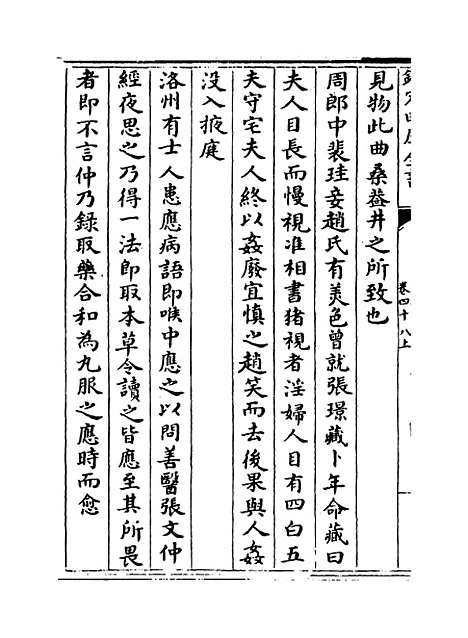 欽定四庫全書
卷四十八上
見物此曲桑盎井之所致也
周郎中裴珪妾趙氏有美色曾就張璟藏卜年命藏曰
夫人目長而慢視准相書豬視者淫婦人目有四白五
夫守宅夫人終以姦廢宜慎之趙笑而去後果與人姦
没入掖庭
洛州有士人患應病語即喉中應之以問善醫張文仲
經夜思之乃得一法即取本草令讀之皆應至其所畏
者即不言仲乃錄取藥合和為丸服之應時而愈